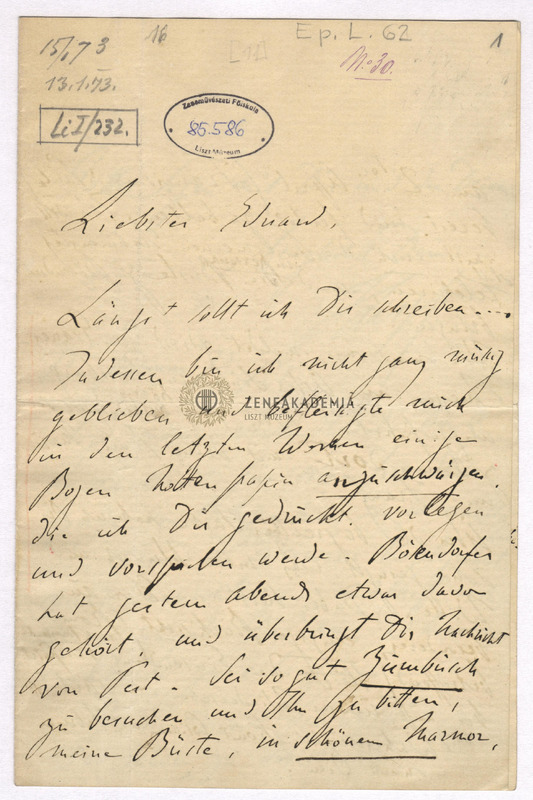 15/1 73
16
[11]
Ep. L. 62
1
13.1.73.
No 30.
Li I/232.
Zeneművészeti Főiskola
86.586
Liszt Múzeum
Liebster Eduard,
Längst sollt ich Dir schreiben....
Indessen bin ich nicht ganz müssig
geblieben und befleissigte mich
in den letzten Wochen einige
Bogen Notenpapier anzuschwärzen,
die ich Dir gedruckt vorlegen
und vorspielen werde. Bösendorfer
hat gestern abends etwas davon
gehört, und überbringt Dir Nachricht
von Pest. Sei so gut Zumbusch
zu besuchen und Ihn zu bitten,
meine Büste, in schönem Marmor,
ZENEAKADÉMIA
LISZT MÚZEUM